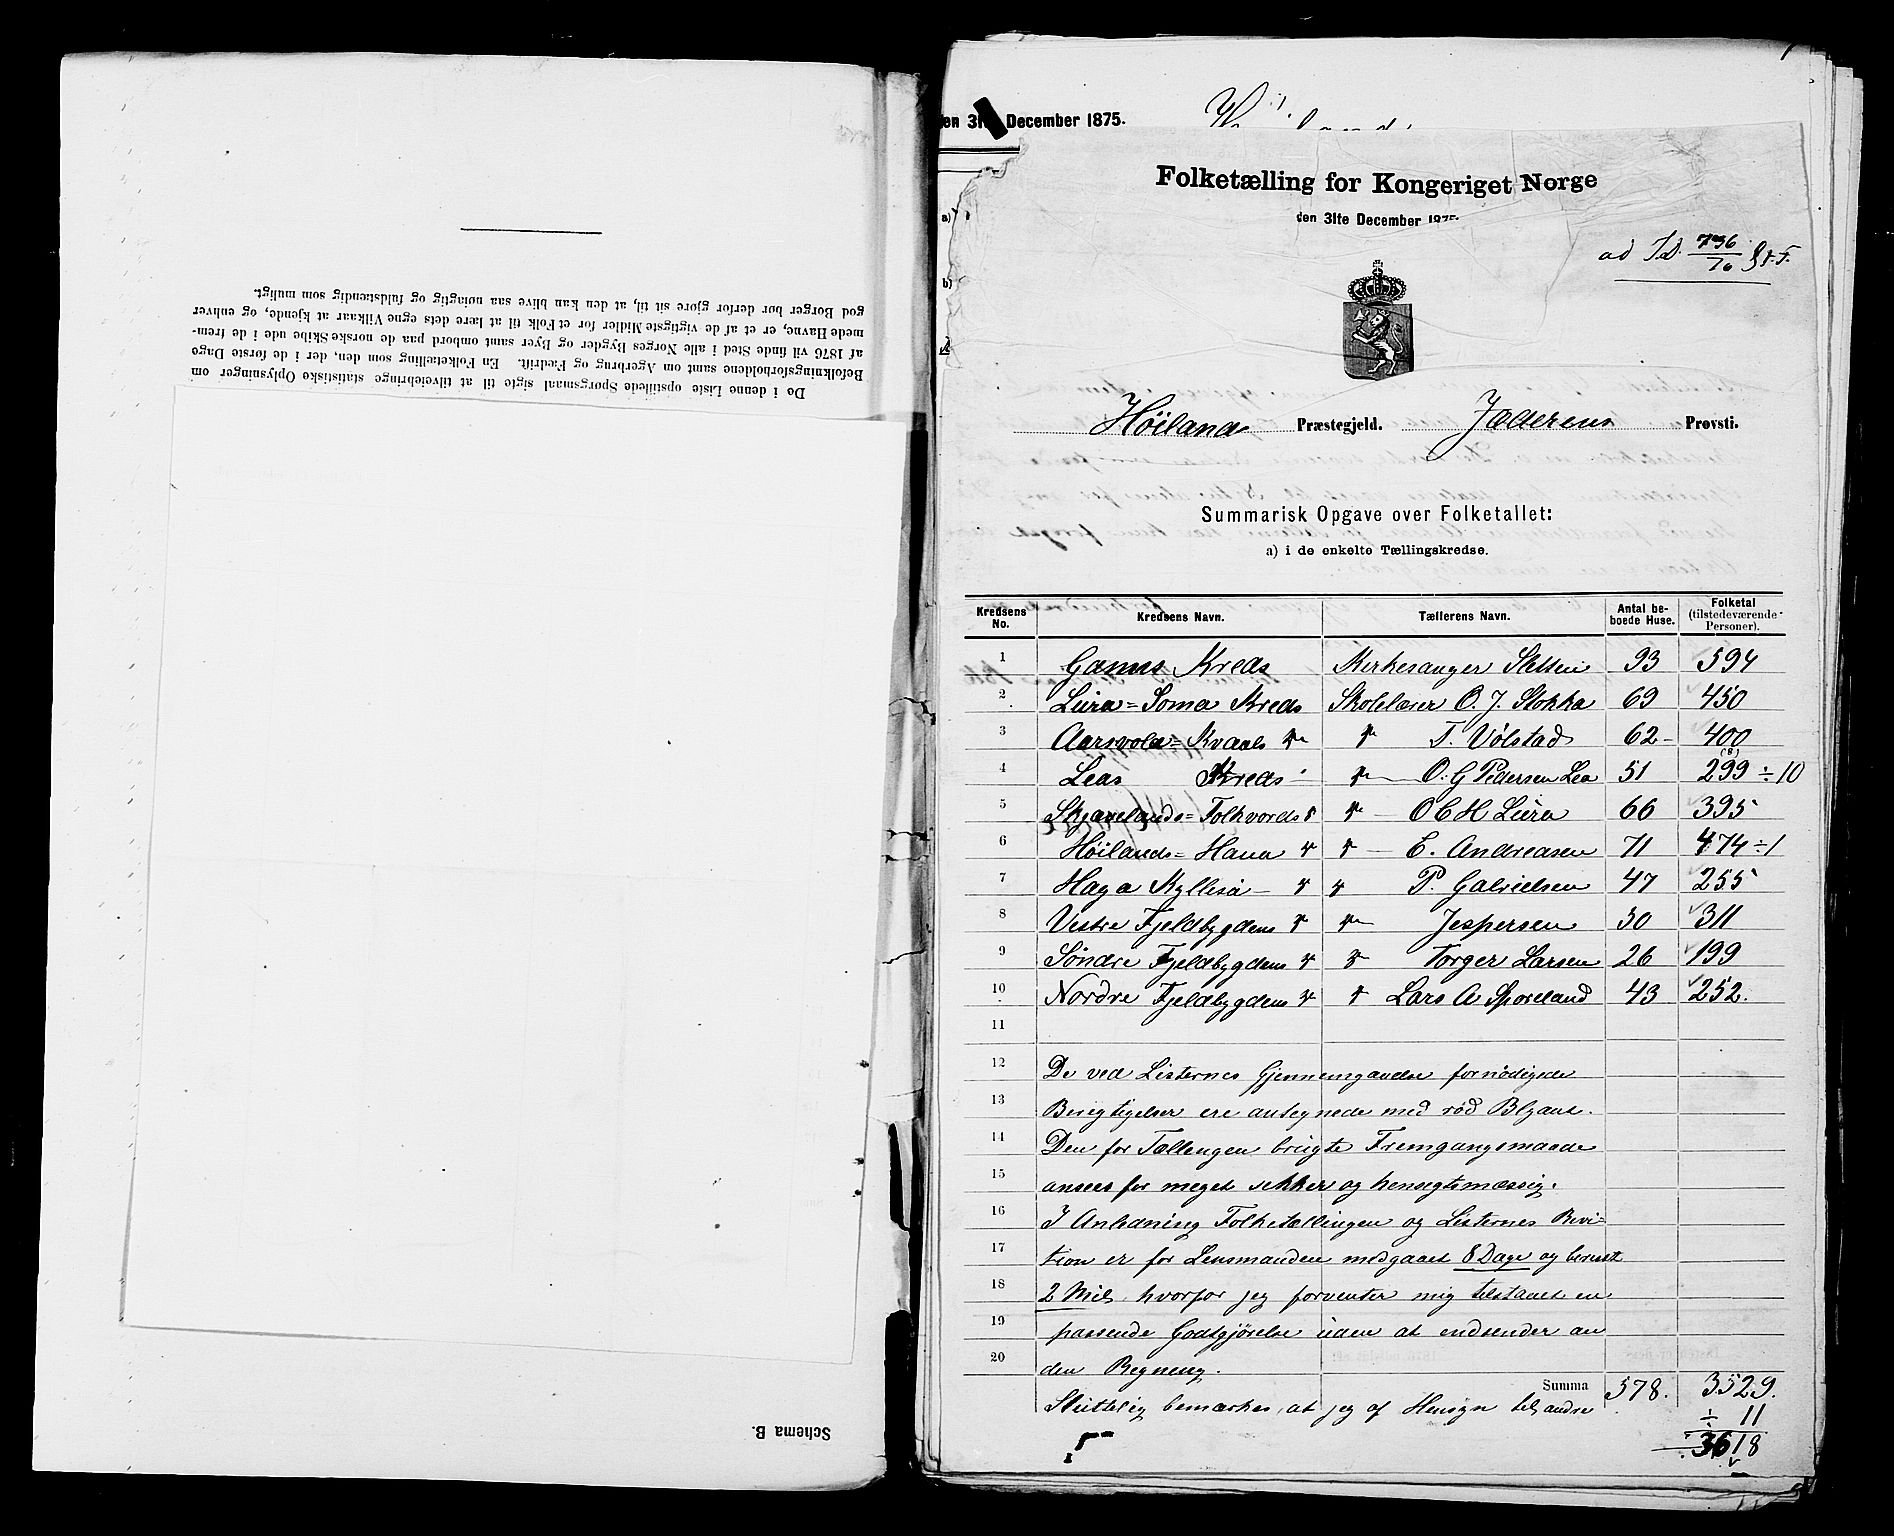 De i denne Liste opstillede Spørgsmaal sigte til at tilveiebringe statistiske Oplysninger om
Befolkningsforholdene samt om Agerbrug og Fædrift. En Folketælling som den, der i de første Dage
af 1876 vil finde Sted i alle Norges Bygder og Byer samt ombord paa de norske Skibe ude i de frem-
mede Havne, er et af de vigtigste Midler for et Folk til at lære dets egne Vilkaar at kjende, og enhver
god Borger bør derfor gjøre sit til, at den kan blive saa nøiagtig og fuldstændig som muligt.
Schema B.
en 31te December 1875.
a)
b)
Folketælling for Kongeriget Norge
den 31te December 1875.
ad I.D. 736/76 St.F.
Høiland Præstegjeld. Jæderens Provsti.
Summarisk Opgave over Folketallet:
a) i de enkelte Tællingskredse.
Kredsens No. Kredsens Navn. Tællerens Navn. Antal be-boede Huse. Folketal (tilstedeværende Personer).
1 Gams Kreds Kirkesanger Sletten 93 594
2 Lura=Soma Kreds Skolelærer O. J. Stokka 69 450
3 Aarsvold=Kvaals " " T. Vølstad 62 400
(8)
4 Leas Kreds " O. G Pedersen Lea 51 299 ÷10
5 Skjævelands=Folkvords " " O C H Lura 66 395
6 Høilands=Hana " " E. Andreasen 71 474 ÷1
7 Haga Kyllesø " " P. Gabrielsen 47 255
8 Vestre Fjeldbygdens " " Jespersen 50 311
9 Søndre Fjeldbygdens " " Torger Larsen 26 199
10 Nordre Fjeldbygdens " " Lars A Sporeland 43 252.
11
12 De ved Listernes Gjennemgaaelse fornødigede
13 Berigtigelser ere antegnede med rød Blyant.
14 Den for Tællingen brugte Fremgangsmaade
15 ansees for meget sikker og hensigtsmæssig.
16 I Anledning Folketællingen og Listernes Revi=
17 sion er for Lensmanden medgaaet 8 Dage og bereist
18 2 Mil, hvorfor jeg forventer mig tilstaaet en
19 passende Godtgjørelse uden at indsender an
20 den Regning.
Summa 578. 3529.
Sluttelig bemærkes, at jeg af Hensyn til andre
÷ 11
3618